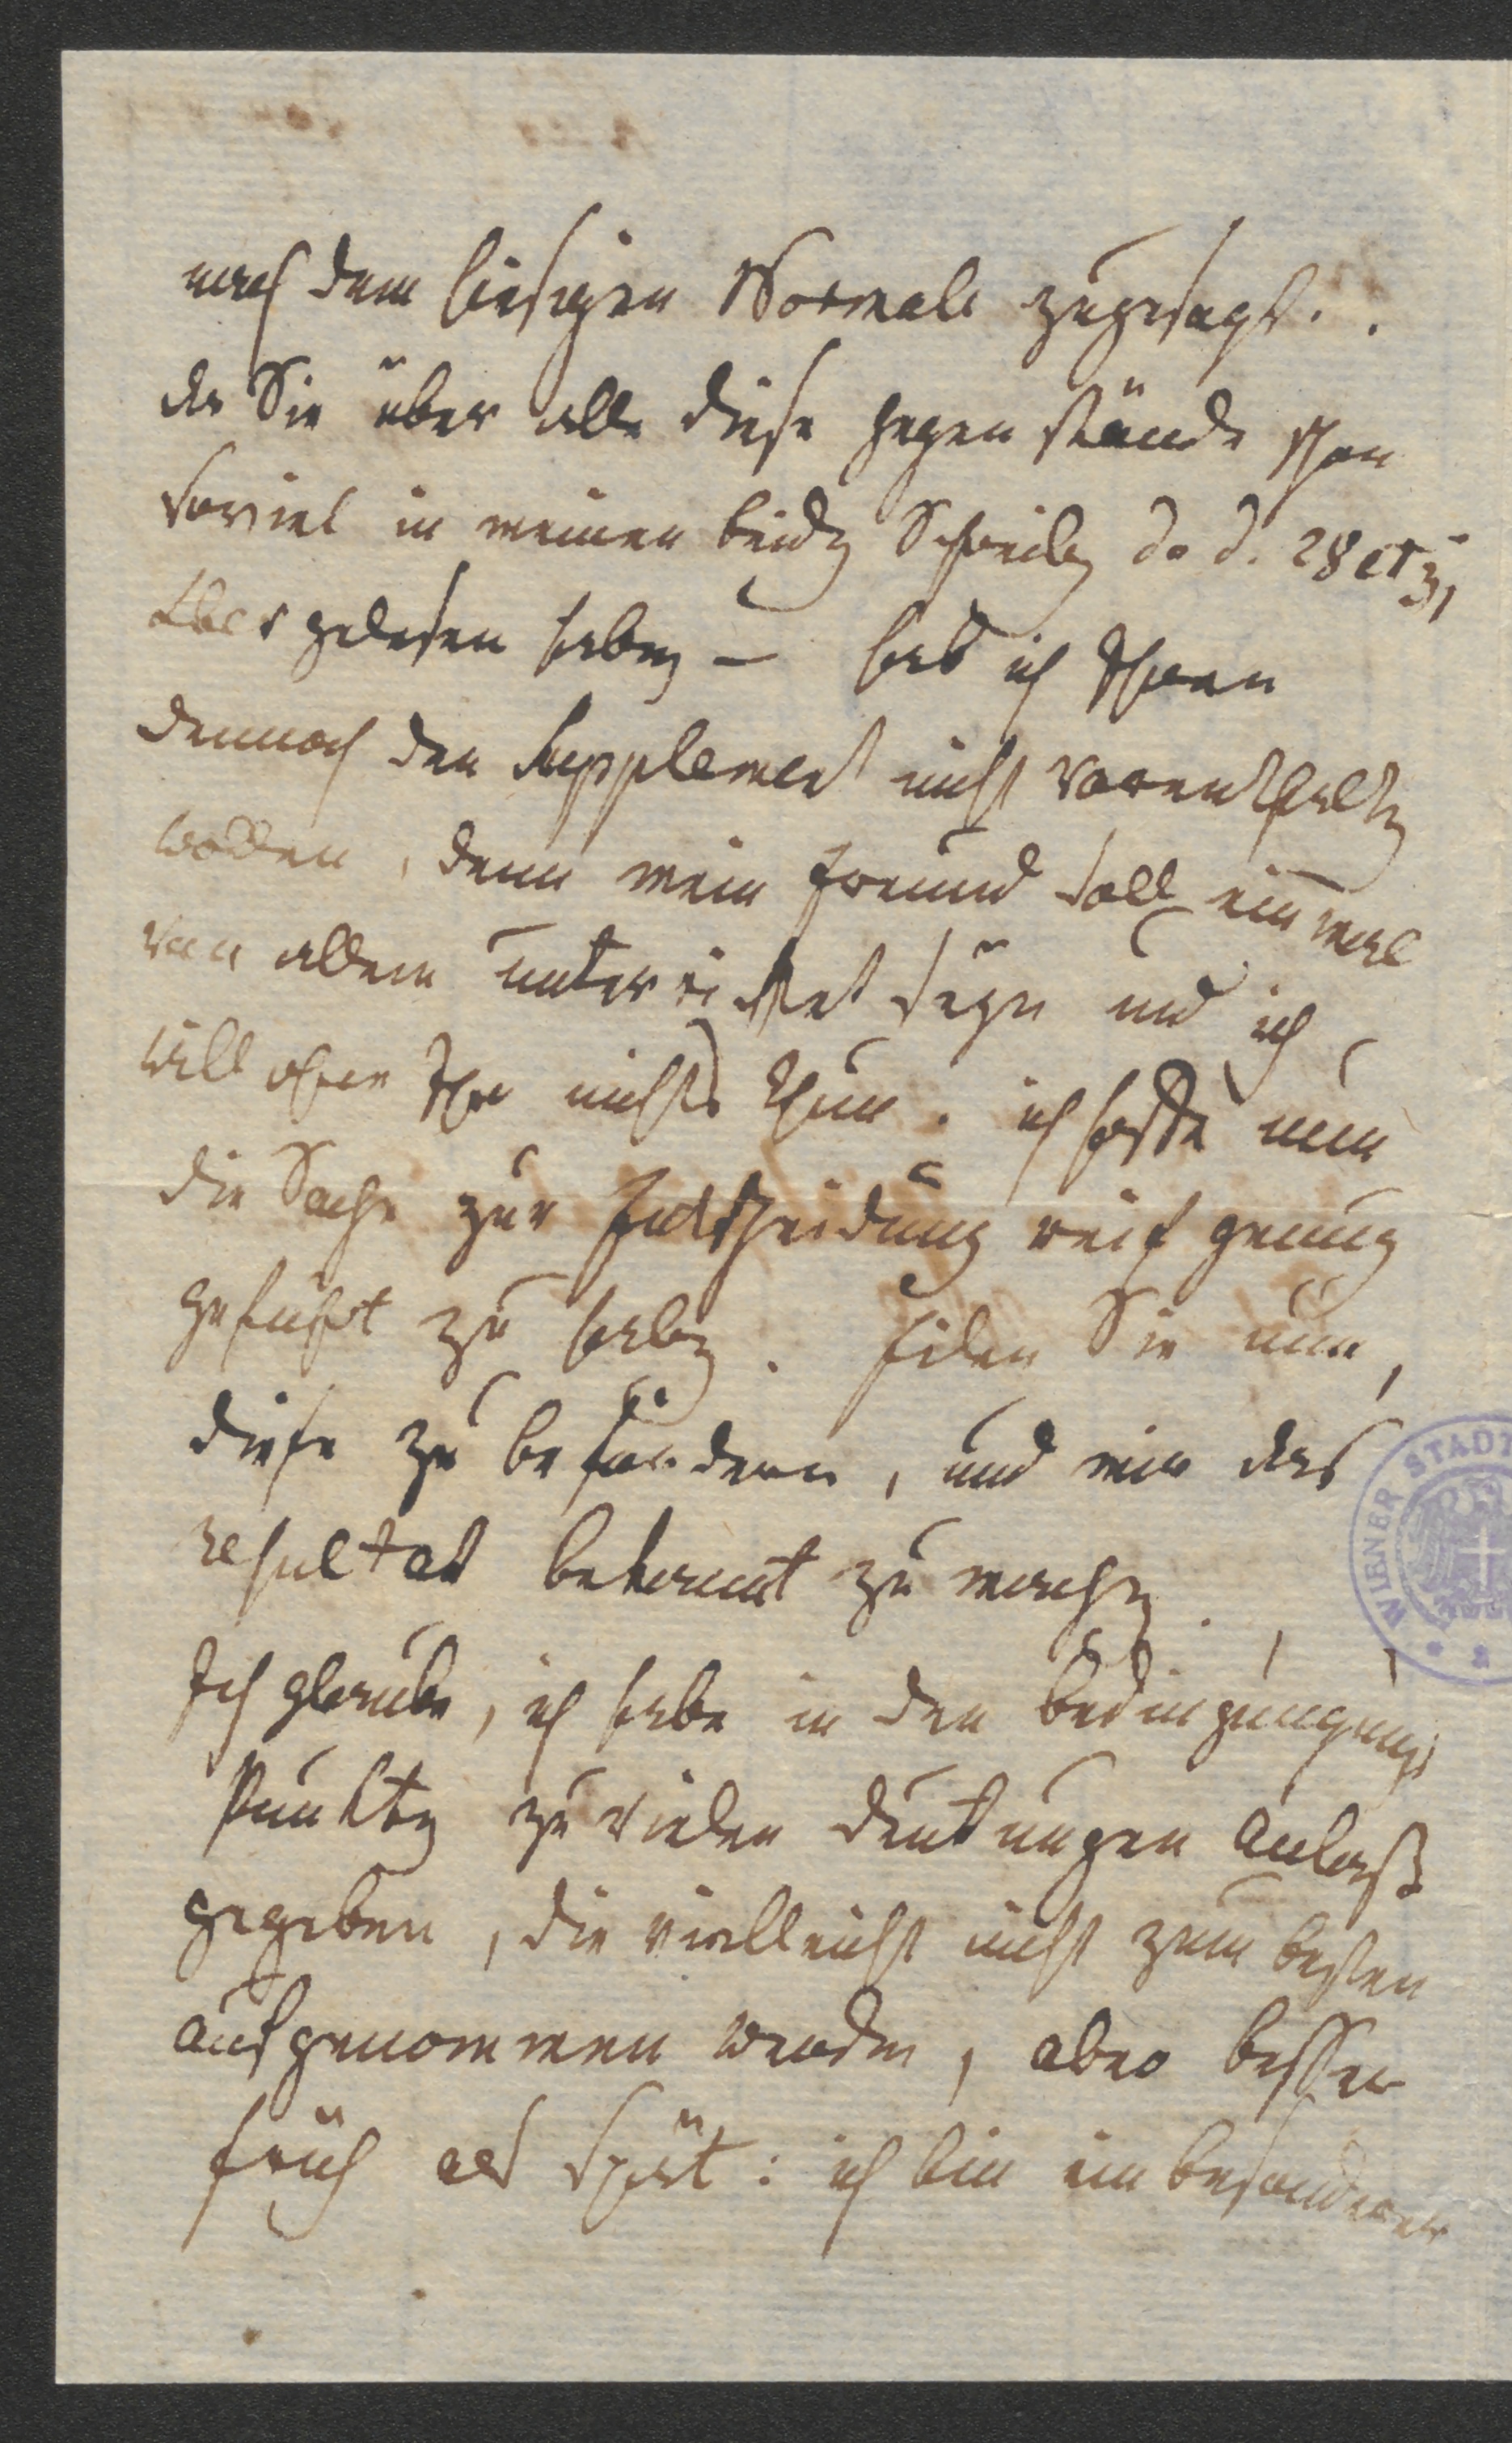 nach dem hiesigen Normale zugesagt.
da Sie über alle diese gegenstände schon
soviel in meinen beidn Schreibn d. d. 28 et 31
8ber gelesen habn – hab ich Ihnen
dennoch den Supplement nicht vorenthaltn
wollen, denn mein Freund soll einmal
von allem unterrichtet seyn und ich
will ohne Ihn nichts thun. ich hoffe nun
die Sache zur Entscheidung reif genug
geführt zu habn. Eilen Sie nun,
diese zu befördern, und mir das
resultat bekannt zu machn.
Ich glaube, ich habe in den bedingungungs
Punktn zu vielen deutungen anlaß
gegeben, die vielleicht nicht zum besten
aufgenommen werden, aber besser
früh als spät: ich bin ein besonderer
WIENER STADT